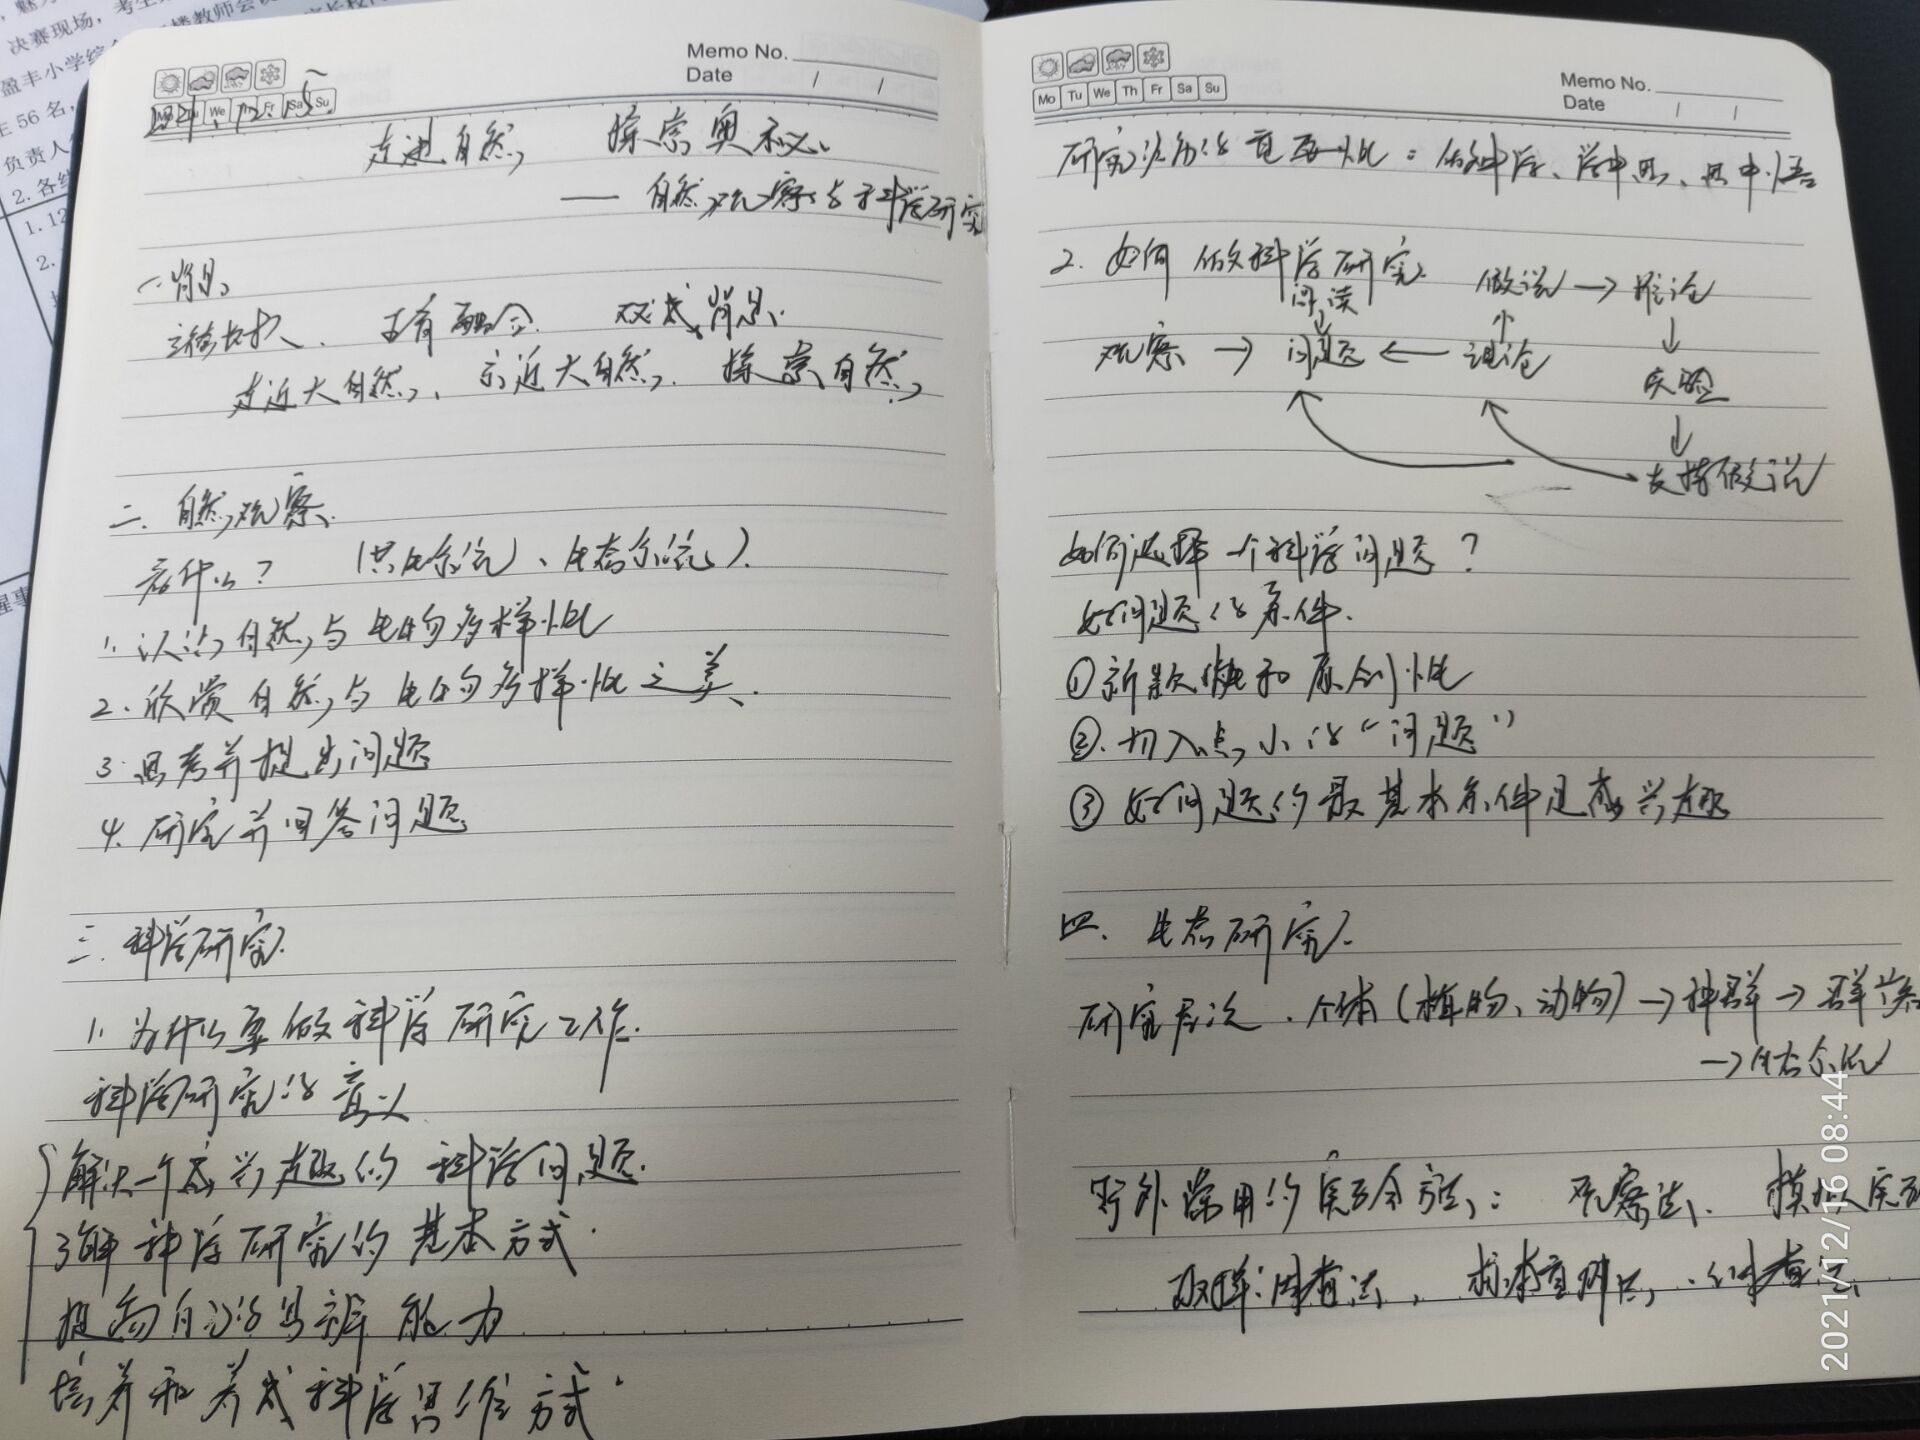 决赛现场，考生
盈丰小学综
楼教师会议
生56名，
负责人
2. 各
1. 12
2.
Memo No.
Date / /
Mo Tu We Th Fr Sa Su
2021.12.15.
走进自然, 探索奥秘.
—— 自然观察与科学研究
一. 背景
立德树人. 五育融合. 双减背景.
走近大自然、亲近大自然. 探索自然,
二. 自然观察.
看什么？ (生态系统).
1. 认识自然与生物多样性
2. 欣赏自然与生物多样性之美.
3. 思考并提出问题
4. 研究并回答问题
三. 科学研究.
1. 为什么要做科学研究工作.
科学研究的意义
解决一个感兴趣的科学问题.
了解科学研究的基本方式.
提高自己的思辨能力
培养和养成科学思维方式.
Memo No.
Date / /
Mo Tu We Th Fr Sa Su
研究经历的重要性：做中学、学中思、思中悟
2. 如何做科学研究
阅读 假说 → 推论
观察 → 问题 ← 理论 实验
支持假说
如何选择一个科学问题？
好问题的条件.
① 新颖性和原创性
②. 切入点小的“问题”
③ 好问题的最基本条件是感兴趣
四. 生态研究.
研究层次. 个体(植物、动物) → 种群 → 群落
→ 生态系统
野外常用的实验方法： 观察法、模拟实验
取样调查法, 标志重捕法,
2021/12/16 08:44